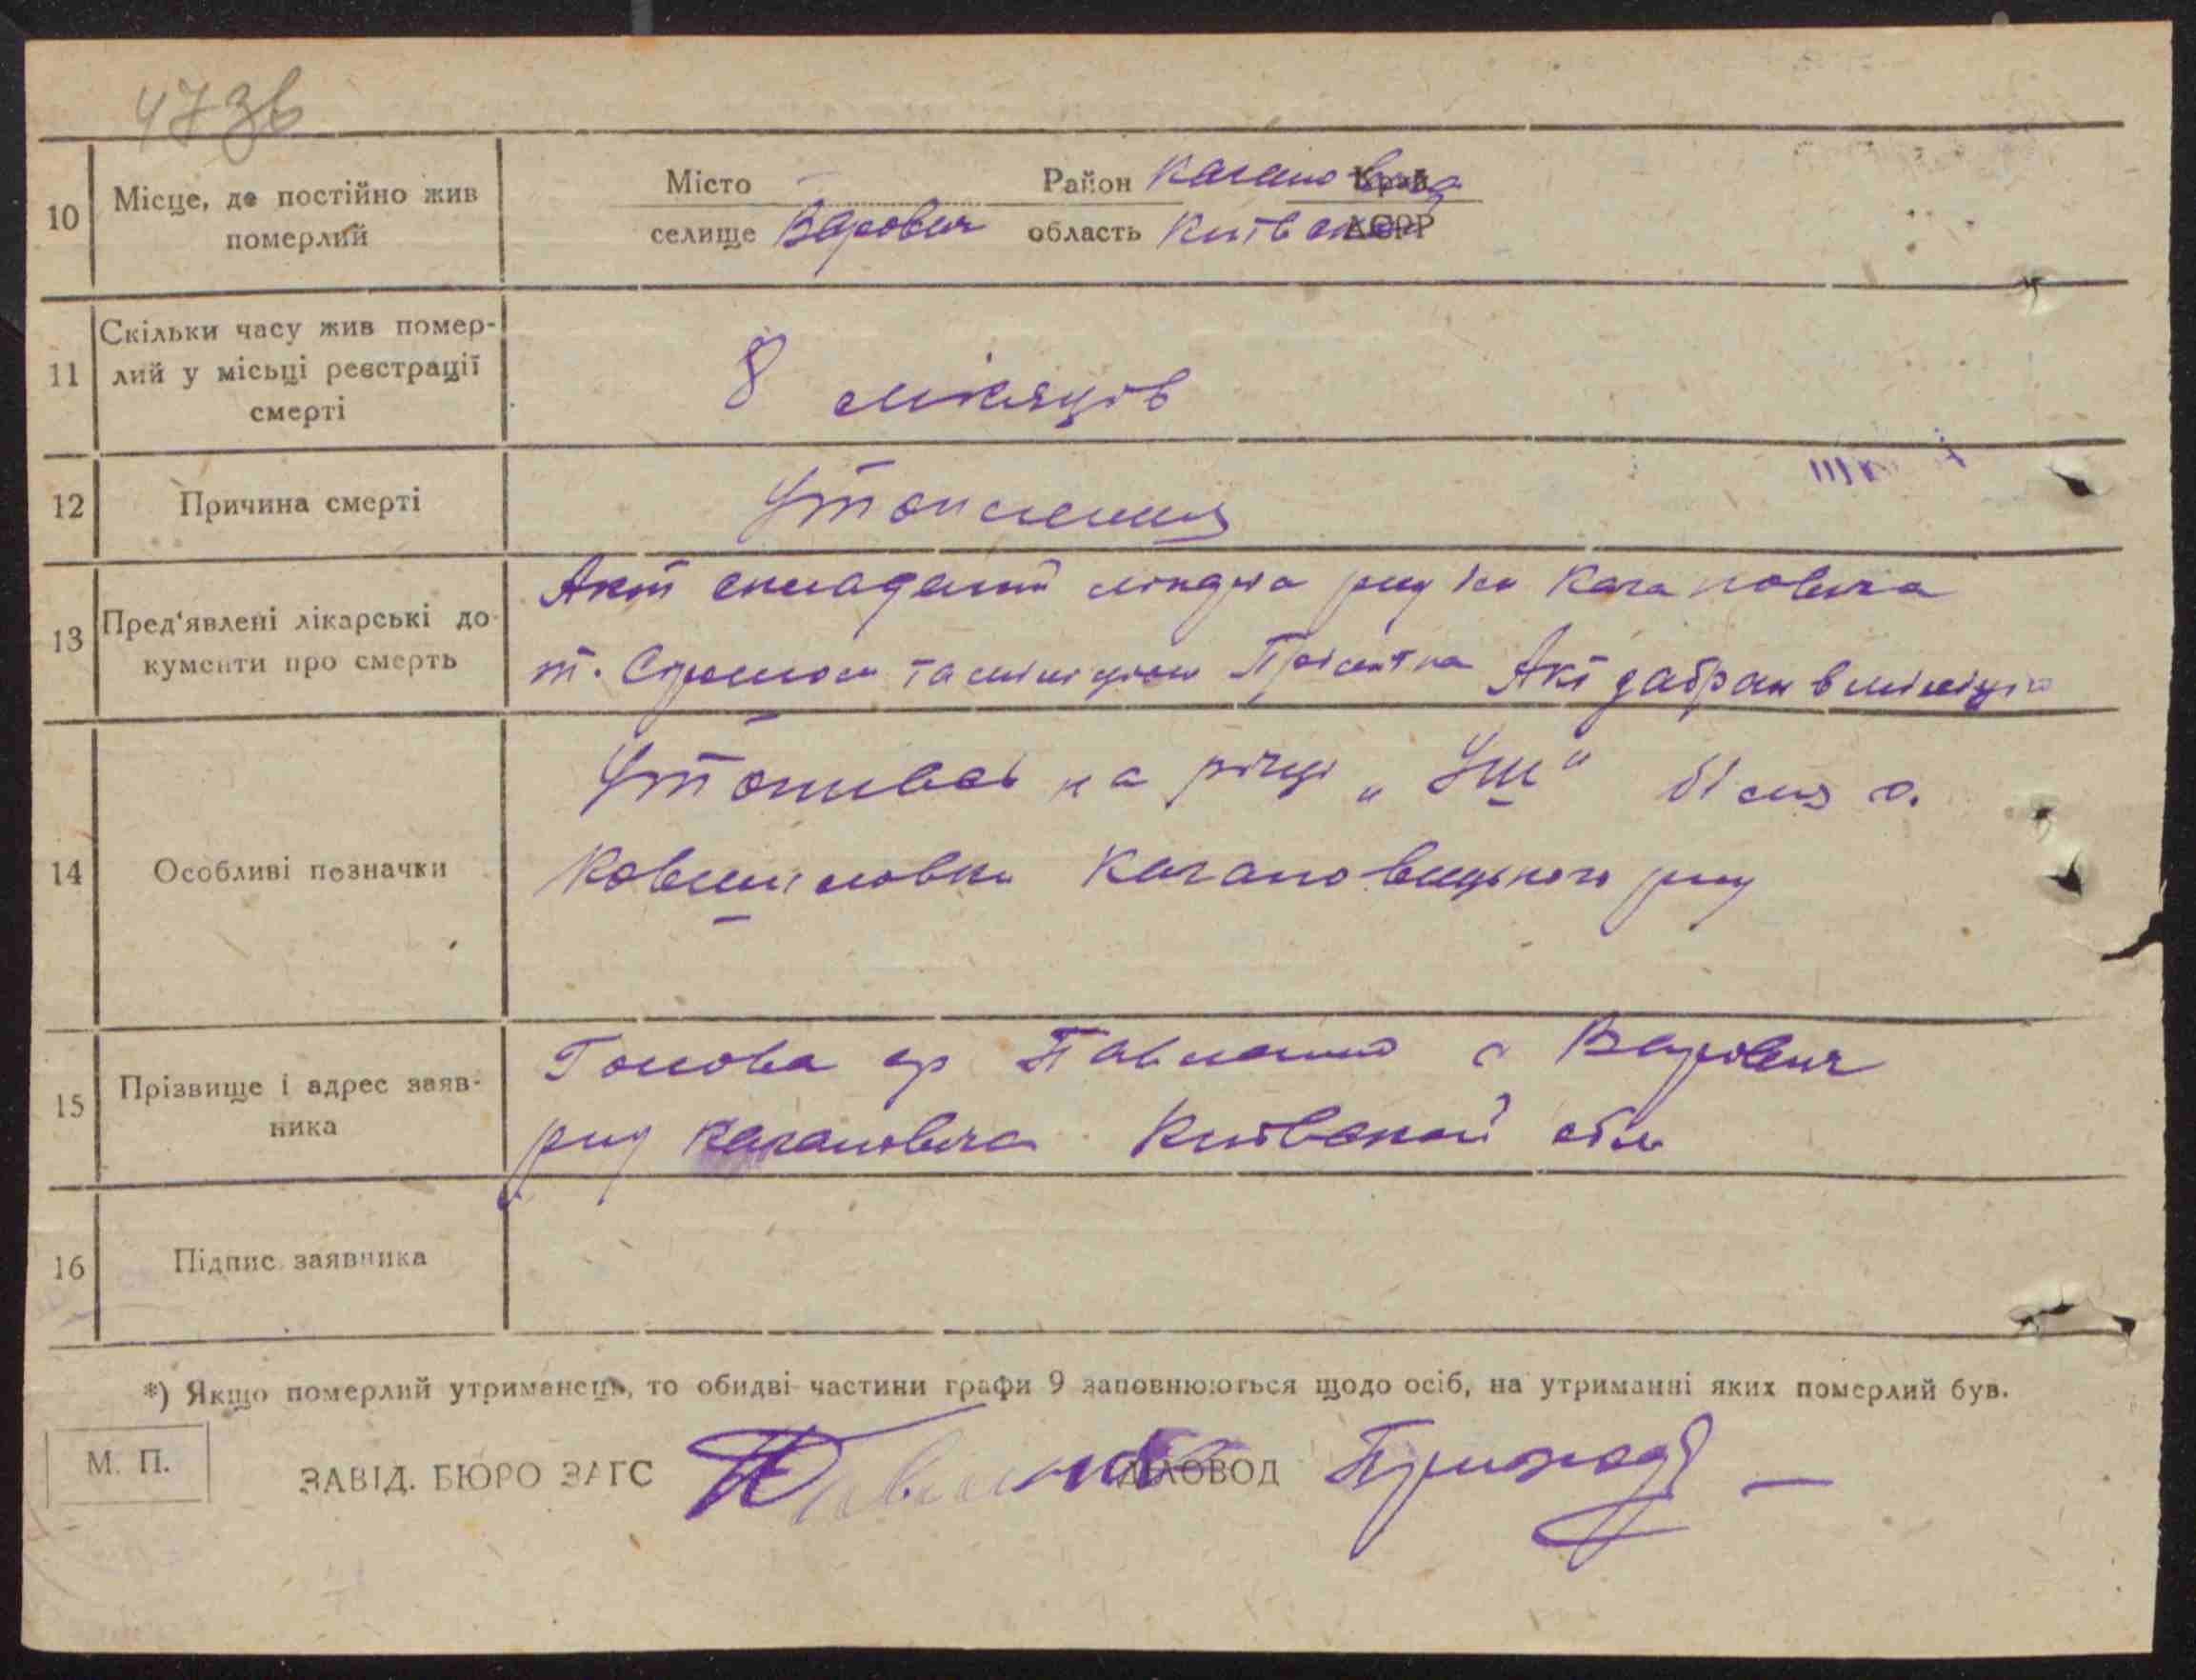 47 зв
10 Місце, де постійно жив померлий
Місто — Район Кагановича Край
селище Варовичі область Київська АСРР
11 Скільки часу жив помер-
лий у місьці реєстрації
смерті
8 місяців
12 Причина смерті
Утоплення
13 Пред'явлені лікарські до-
кументи про смерть
Акт складений р-ну ім Кагановича
т. та міліцією Акт забран в міліцію
14 Особливі позначки
Утопивсь на річці „Уш" біля с.
Ковшиловки Кагановицького р-ну
15 Прізвище і адрес заяв-
ника
Голова с/р с Варовичі
р-ну Кагановича Київської обл
16 Підпис заявника
*) Якщо померлий утриманець, то обидві частини графи 9 заповнюються щодо осіб, на утриманні яких померлий був.
М. П.
ЗАВІД. БЮРО ЗАГС ДІЛОВОД